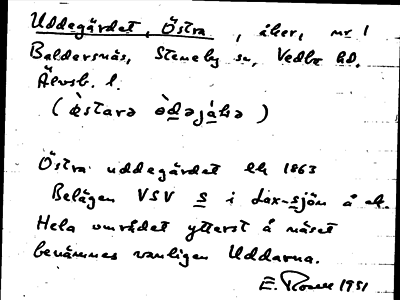 Uddegärdet, Östra, åker, nr 1
Baldersnäs, Steneby sn, Vedbo hd.
Älvsb. l.
(östarə ödəjäḷə)
Östra uddegärdet lh 1863
Belägen VSV s i Laxsjön å ek.
Hela området ytterst å näset
benämnes vanligen Uddarna.
E. Rosell 1951